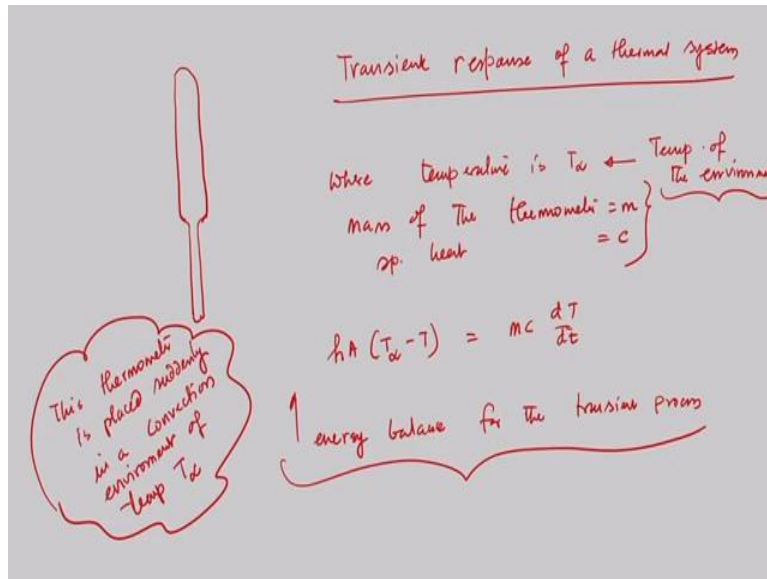 Transient response of a thermal system
where temperature is T∞ ← Temp. of
the environme
mass of the thermomete = m
sp. heat = c
hA (T∞ - T) = mc dT/dt
energy balance for the transient process
This thermomete
is placed suddenly
in a convection
enviroment of
temp T∞